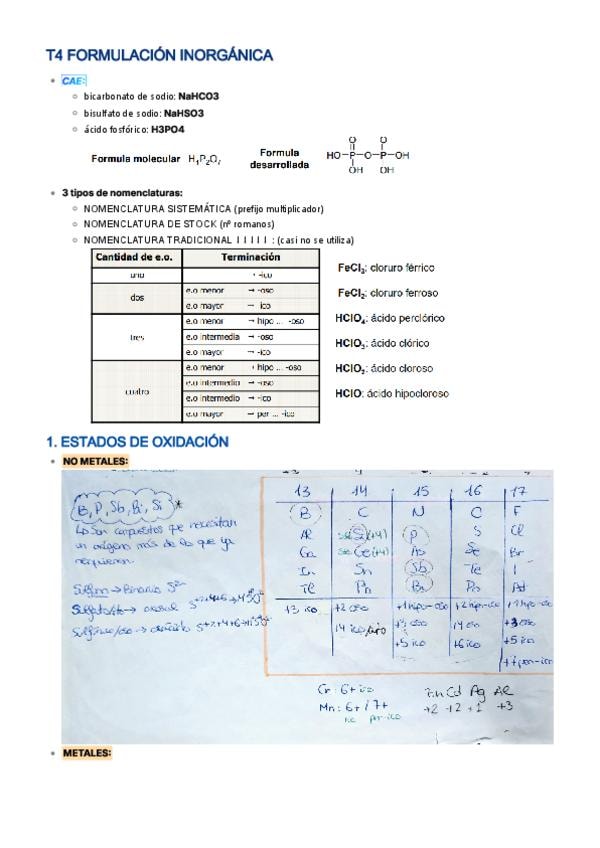 T4 FORMULACIÓN INORGÁNICA
CAE:
bicarbonato de sodio: NaHCO3
bisulfato de sodio: NaHSO3
ácido fosfórico: H3PO4
Formula molecular H₄P₂O₇
Formula desarrollada
O O
HO—P—O—P—OH
OH OH
3 tipos de nomenclaturas:
NOMENCLATURA SISTEMÁTICA (prefijo multiplicador)
NOMENCLATURA DE STOCK (nº romanos)
NOMENCLATURA TRADICIONAL ↓↓↓↓↓ : (casi no se utiliza)
Cantidad de e.o. Terminación
uno → -ico
dos
e.o menor → -oso
e.o mayor → -ico
tres
e.o menor → hipo ... -oso
e.o intermedia → -oso
e.o mayor → -ico
cuatro
e.o menor → hipo ... -oso
e.o intermedio → -oso
e.o intermedio → -ico
e.o mayor → per ... -ico
FeCl₃: cloruro férrico
FeCl₂: cloruro ferroso
HClO₄: ácido perclórico
HClO₃: ácido clórico
HClO₂: ácido cloroso
HClO: ácido hipocloroso
1. ESTADOS DE OXIDACIÓN
NO METALES:
B, P, Sb, Bi, Si *
↳ Son compuestos que necesitan
un oxígeno más de lo que ya
requieren.
→ Binario S²⁻
13 14 15 16 17
B C N O F
Al Si (+4) P S Cl
Ga Ge (+4) As Se Br
In Sn Sb Te I
Tl Pb Bi Po At
+3 ico +2 oso +1 hipo-oso +2 hipo-ico +1 hipo-oso
+4 ico +3 oso +4 oso +3 oso
+5 ico +6 ico +5 ico
+7 per-ico
Cr: 6+ ico
Mn: 6+ / 7+
ico per-ico
Zn Cd Ag Al
+2 +2 +1 +3
METALES: